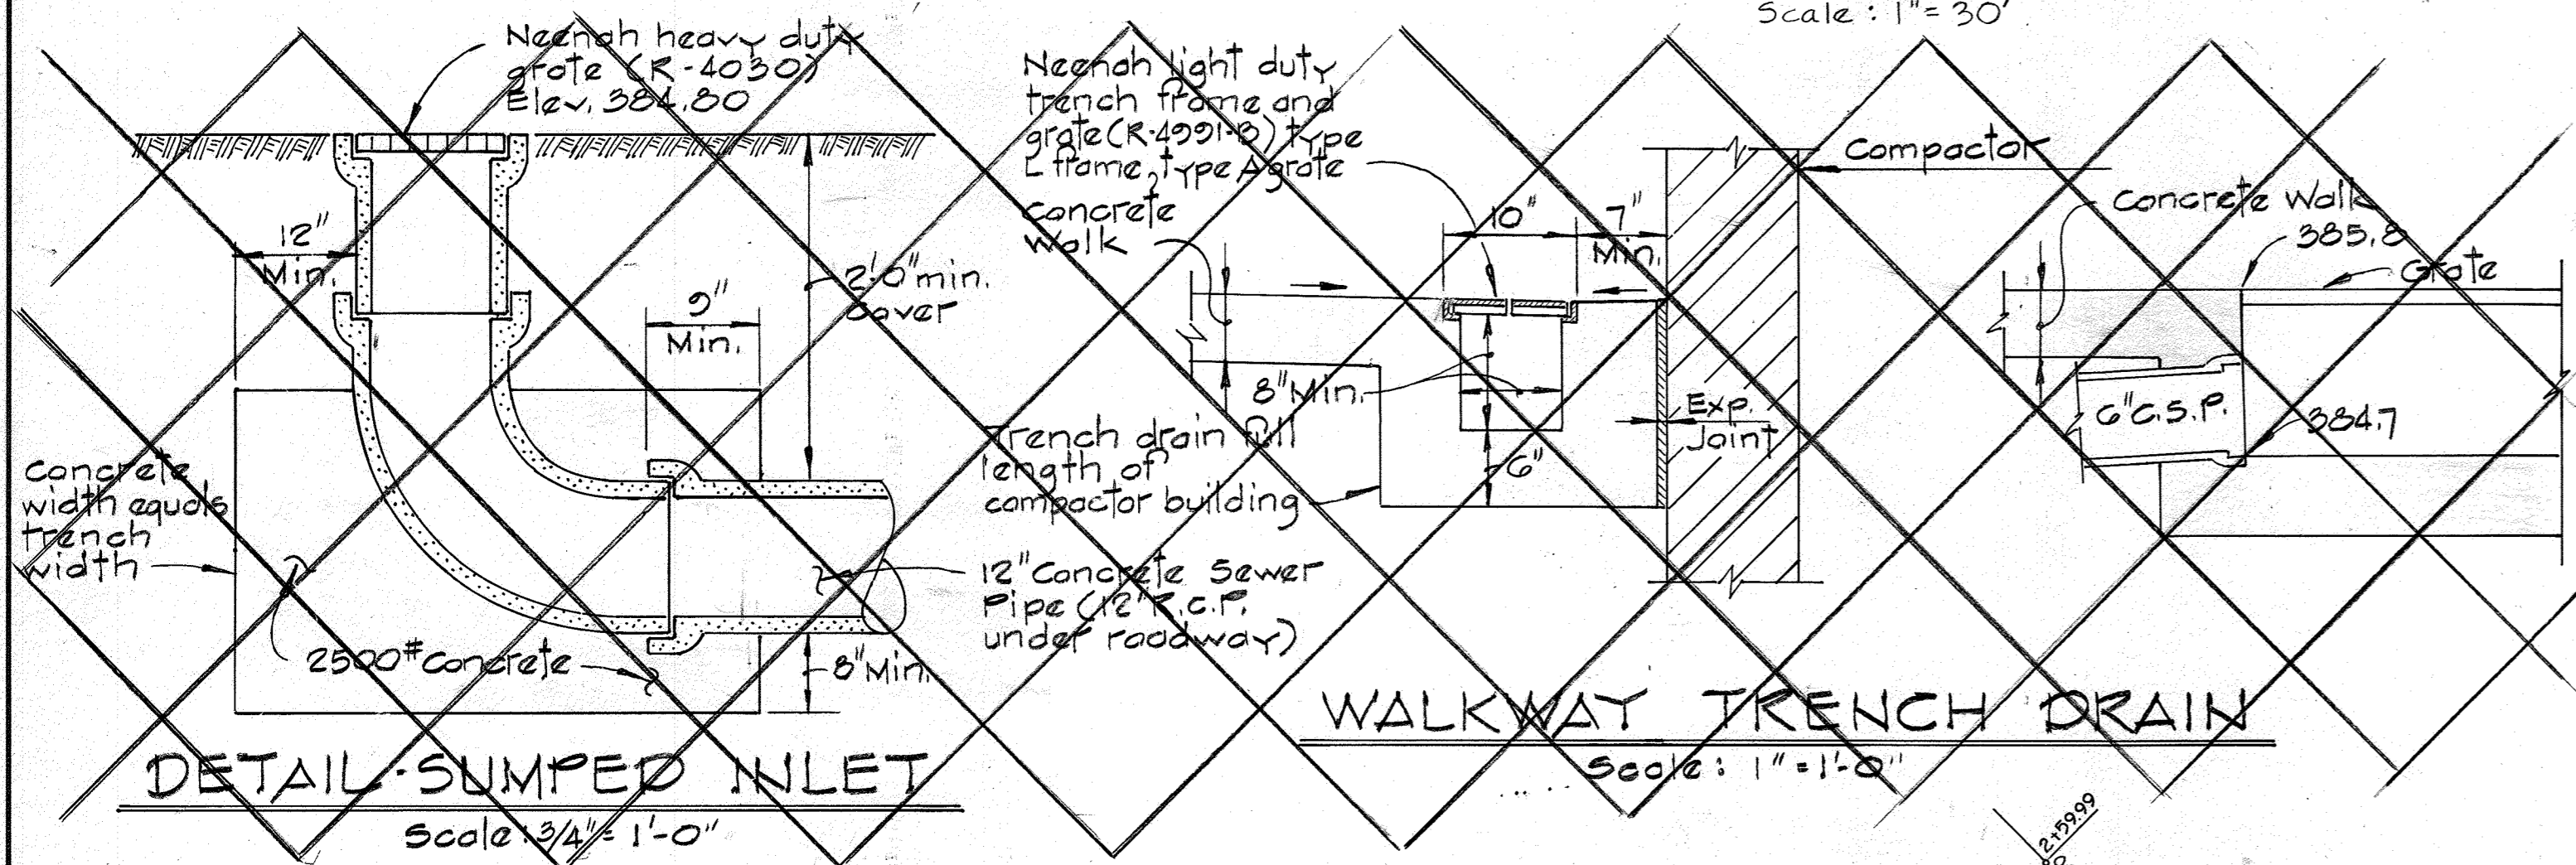 Scale : 1" = 30'
Neenah heavy duty
grate (R-4030)
Elev. 384.80
12"
Min.
9"
Min.
2'-0" min.
cover
Concrete
width equals
trench
width
2500# Concrete
8" Min.
12" Concrete Sewer
Pipe (12" R.C.P.
under roadway)
DETAIL-SUMPED INLET
Scale : 3/4" = 1'-0"
Neenah light duty
trench frame and
grate (R-4991-B) type
L frame, type A grate
Concrete
Walk
10"
7"
Min.
Compactor
8" Min.
6"
Exp.
Joint
Trench drain full
length of
compactor building
Concrete Walk
385.8
Grate
6" C.S.P.
384.7
WALKWAY TRENCH DRAIN
Scale : 1" = 1'-0"
2+59.99